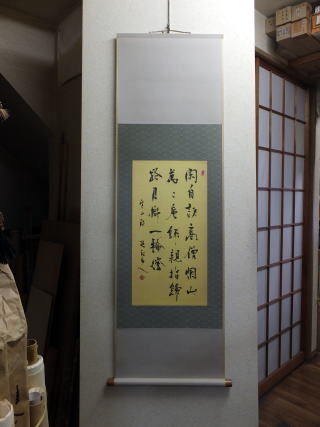 閑自訪高僧烟山
萬々層師親指歸
路月掛一輪燈
寒山詩